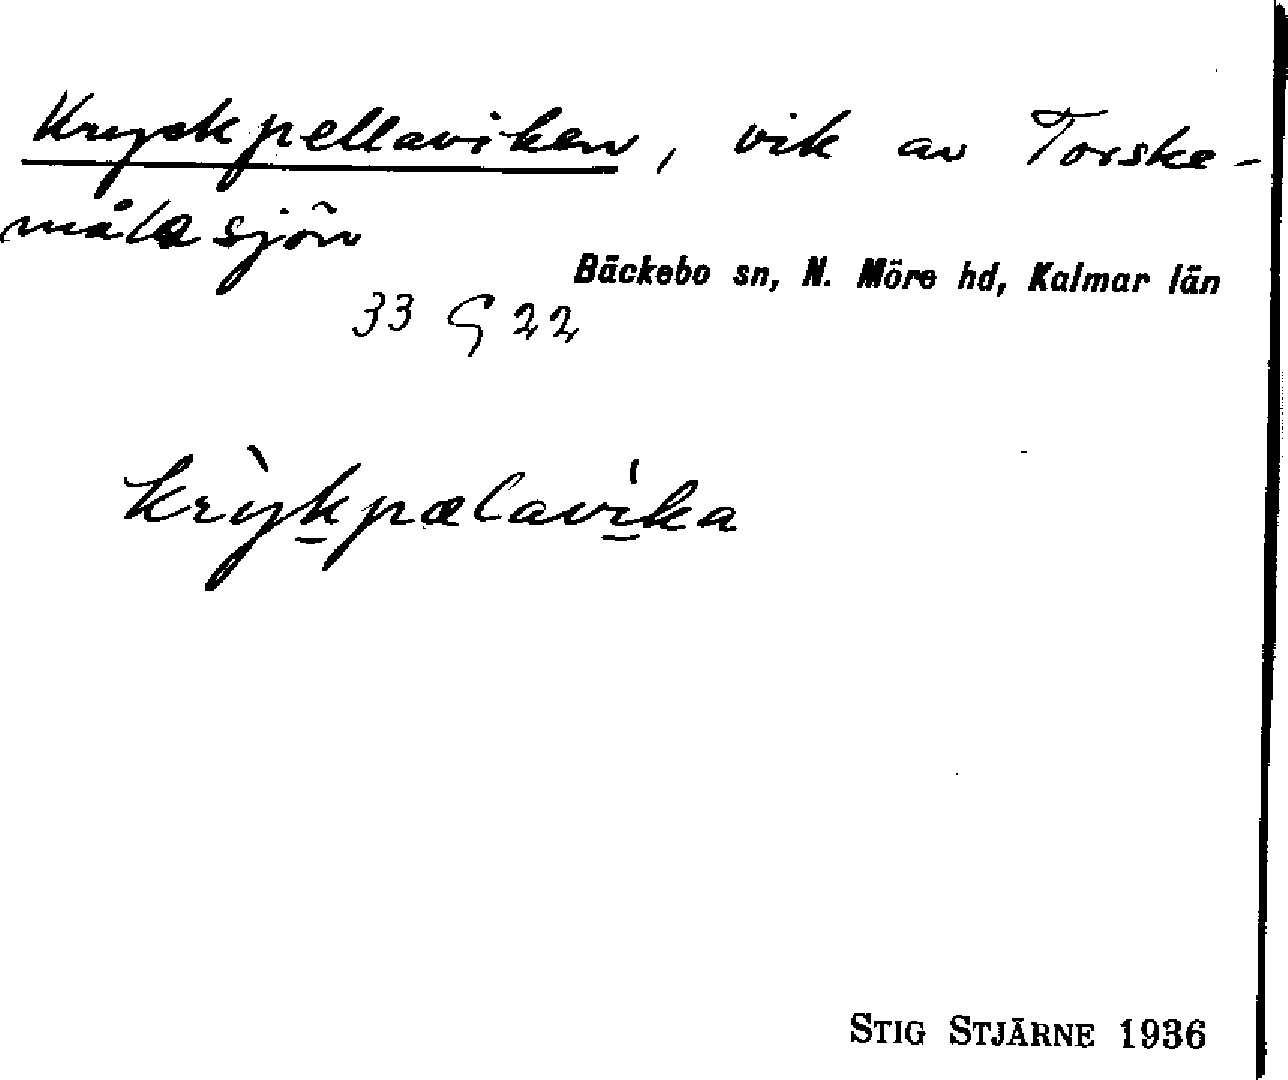 Kryckpellaviken, vik av Torske-
målasjön
Bäckebo sn, N. Möre hd, Kalmar län
33 G 22
krỳkpælavíka
STIG STJÄRNE 1936